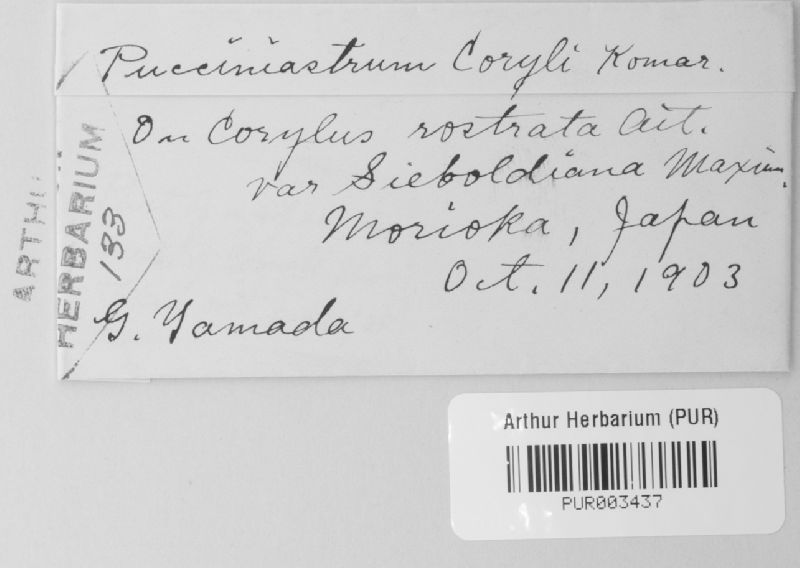 Pucciniastrum Coryli Komar.
On Corylus rostrata Ait.
var Sieboldiana Maxim.
Morioka, Japan
Oct. 11, 1903
G. Yamada
HERBARIUM
133
Arthur Herbarium (PUR)
PUR003437